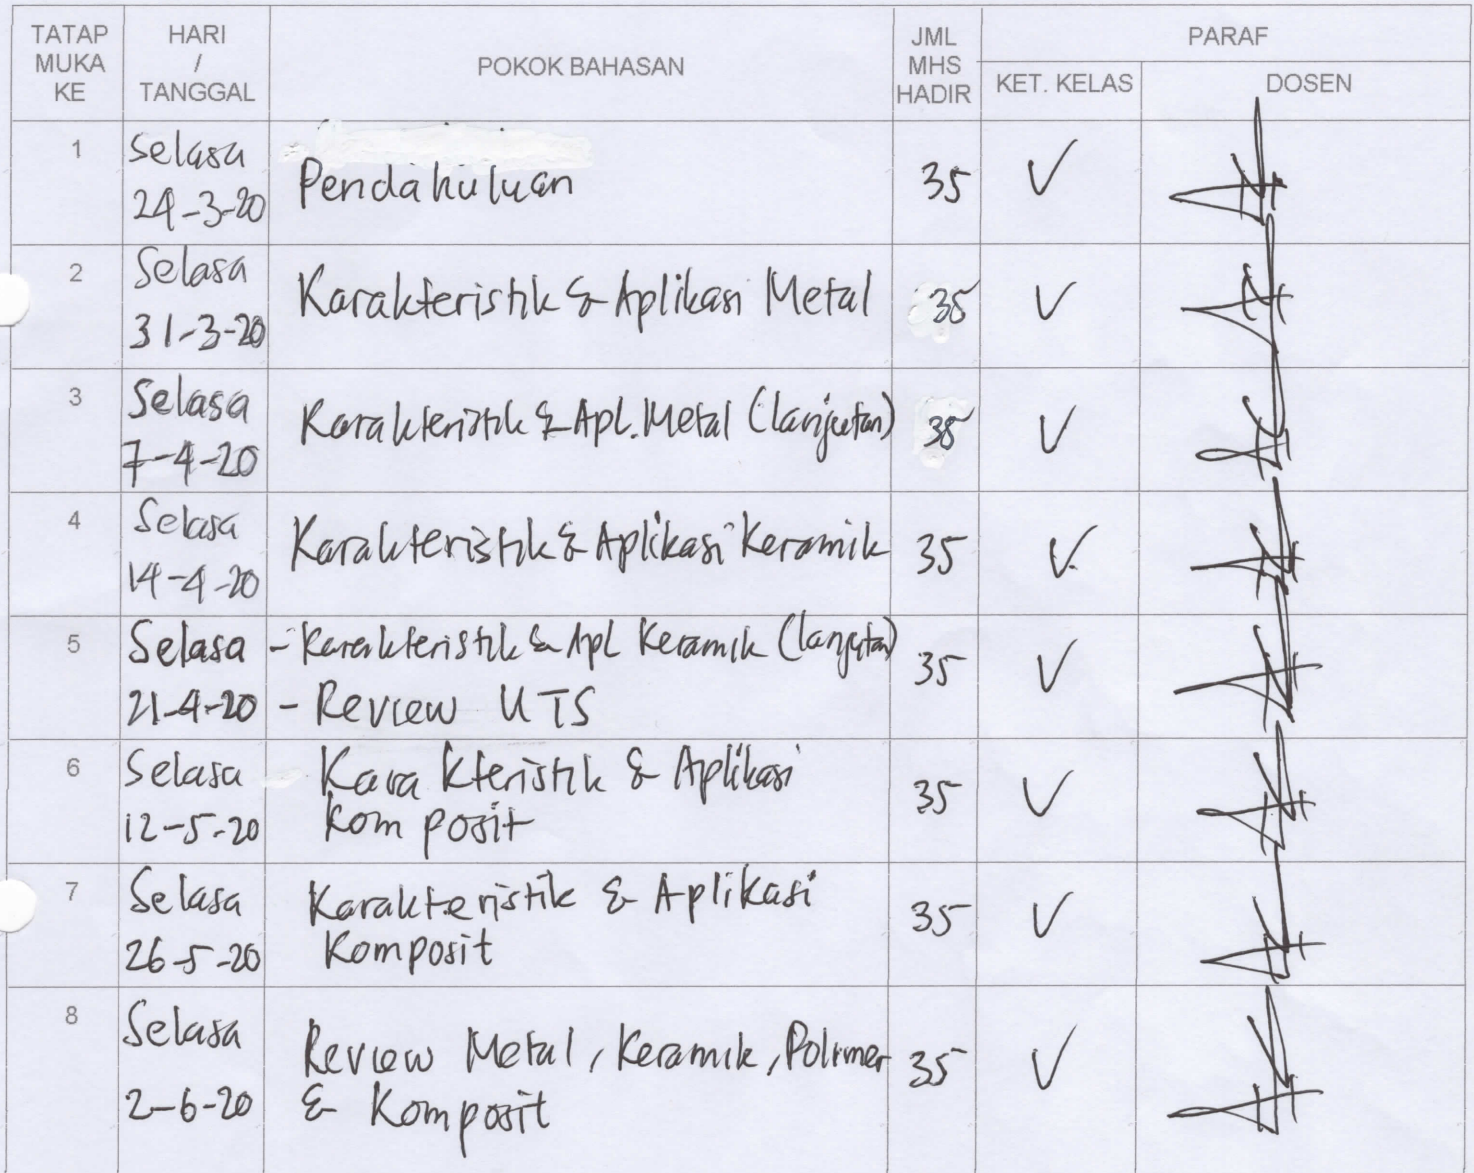 TATAP MUKA KE HARI / TANGGAL POKOK BAHASAN JML MHS HADIR PARAF
KET. KELAS DOSEN
1 Selasa
24-3-20 Pendahuluan 35
2 Selasa
31-3-20 Karakteristik & Aplikasi Metal 35
3 Selasa
7-4-20 Karakteristik & Apl. Metal (lanjutan) 35
4 Selasa
14-4-20 Karakteristik & Aplikasi Keramik 35
5 Selasa - Karakteristik & Apl Keramik (lanjutan) 35
21-4-20 - Review UTS
6 Selasa Karakteristik & Aplikasi
12-5-20 Komposit 35
7 Selasa Karakteristik & Aplikasi
26-5-20 Komposit 35
8 Selasa
Review Metal, Keramik, Polimer 35
2-6-20 & Komposit